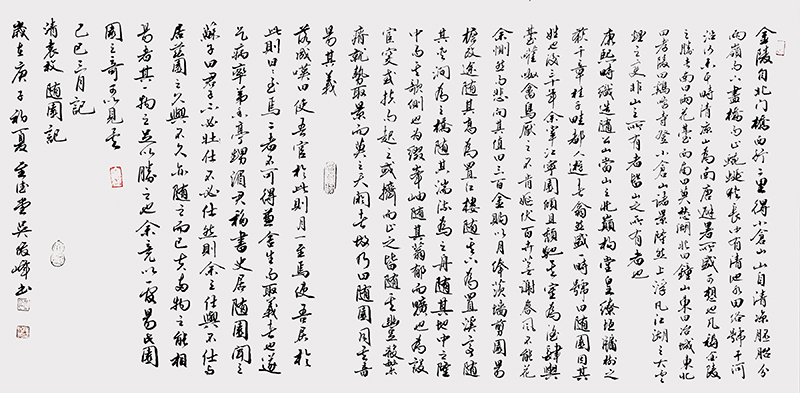 金陵自北門橋西行二里得小倉山山自清涼胚胎分
兩嶺而下盡橋而止蜿蜒狹長中有清池水田俗號干河
沿河未干時清涼山為南唐避暑所盛可想也凡稱金陵
之勝者南曰雨花臺西南曰莫愁湖北曰鐘山東曰冶城東北
曰孝陵曰雞鳴寺登小倉山諸景隆然上浮凡江湖之大雲
煙之變非山之所有者皆山之所有也
康熙時織造隨公當山之北巔構堂皇繚垣牖樹之
荻千章桂千畦都人遊者翕然盛一時號曰隨園因其
姓也後三十年余宰江寧園傾且頹弛其室為酒肆輿
臺嚾呶禽鳥厭之不肯嫗伏百卉蕪謝春風不能花
余惻然而悲問其值曰三百金購以月俸茨墻剪園易
檐改途隨其高為置江樓隨其下為置溪亭隨
其夾澗為之橋隨其湍流為之舟隨其地中之隆
中而欹側也為綴峰岫隨其蓊郁而曠也為設
宧窔或扶而起之或擠而止之皆隨其豐殺繁
瘠就勢取景而莫之夭閼者故仍曰隨園同其音
易其義
落成嘆曰使吾官於此則月一至焉使吾居於
此則日日至焉二者不可得兼舍生而取義者也遂
乞病率弟香亭甥湄君移書史居隨園聞之
蘇子曰君子不必仕不必不仕然則余之仕與不仕與
居茲園之久與不久亦隨之而已夫兩物之能相
易者其一物之足以勝之也余竟以一官易此園
園之奇可以見矣
己巳三月記
清袁枚隨園記
歲在庚子初夏吳峰書